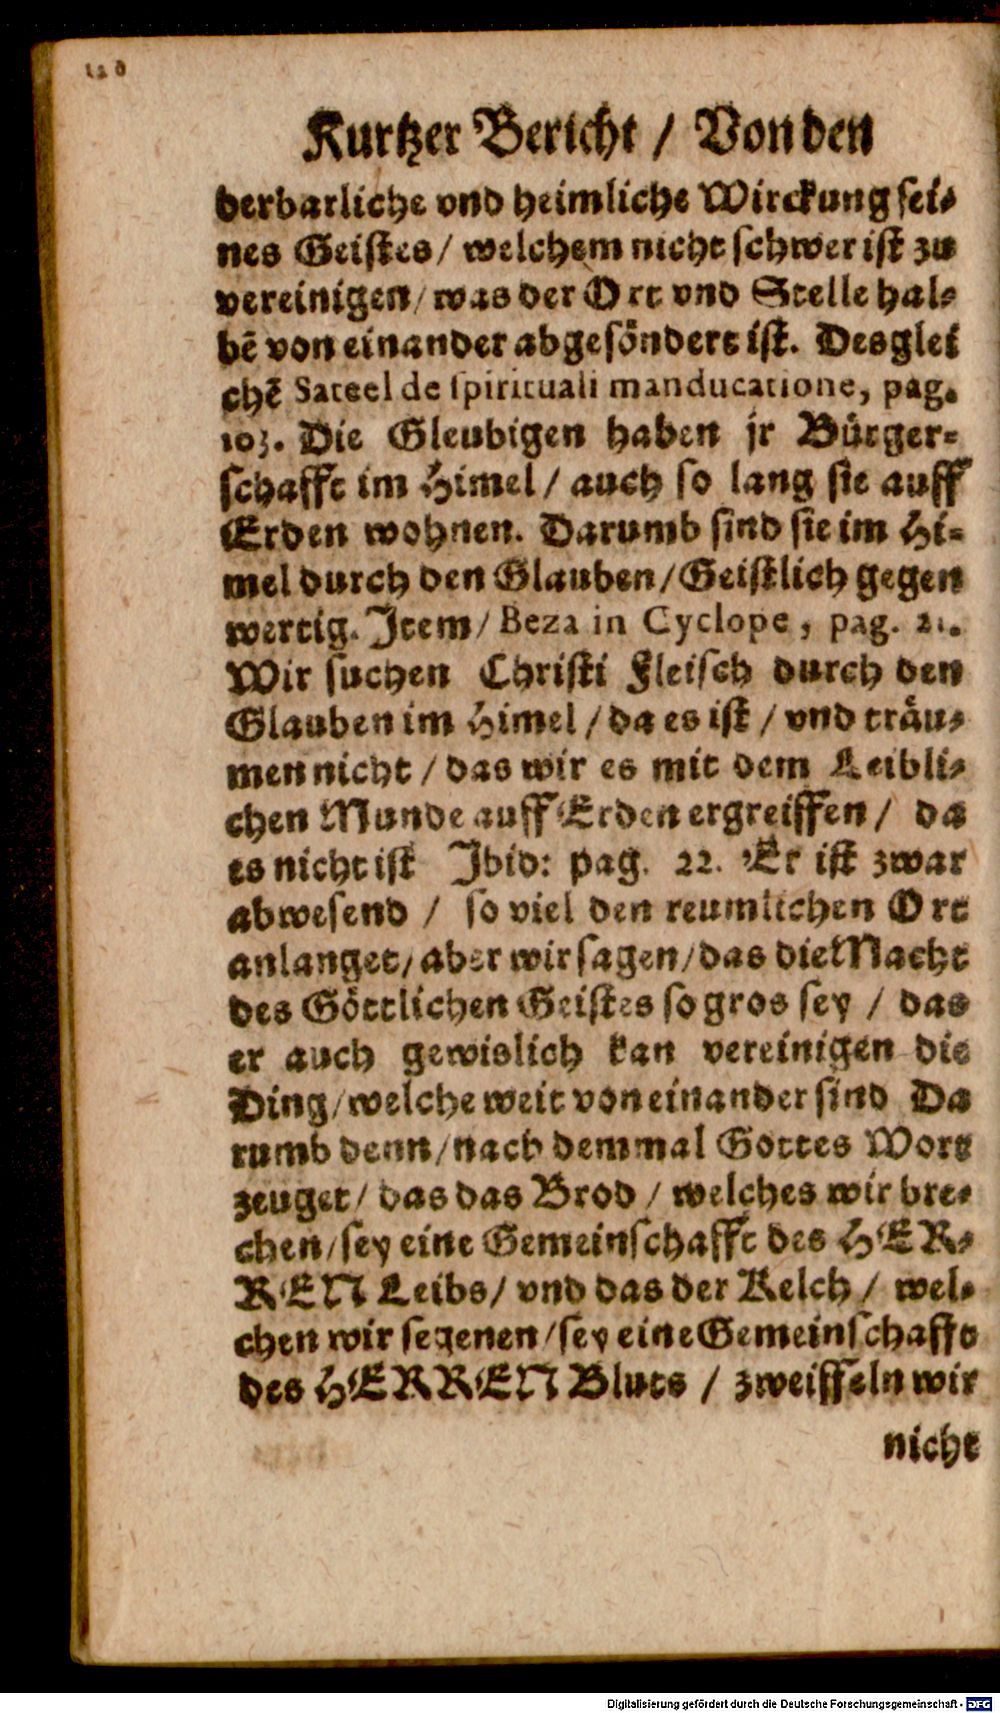 Kurtzer Bericht / Von den
derbarliche vnd heimliche Wirckung sei-
nes Geistes / welchem nicht schwer ist zu
vereinigen / was der Ort vnd Stelle hal-
bẽ von einander abgesöndert ist. Desglei
chẽ Sateel de spirituali manducatione, pag.
103. Die Gleubigen haben jr Bürger-
schafft im Himel / auch so lang sie auff
Erden wohnen. Darumb sind sie im Hi-
mel durch den Glauben / Geistlich gegen
wertig. Jtem / Beza in Cyclope, pag. 21.
Wir suchen Christi Fleisch durch den
Glauben im Himel / da es ist / vnd träu-
men nicht / das wir es mit dem Leibli-
chen Munde auff Erden ergreiffen / da
es nicht ist Jbid: pag. 22. Er ist zwar
abwesend / so viel den reumlichen Ort
anlanget / aber wir sagen / das die Macht
des Göttlichen Geistes so gros sey / das
er auch gewislich kan vereinigen die
Ding / welche weit von einander sind Da
rumb denn / nach demmal Gottes Wort
zeuget / das das Brod / welches wir bre-
chen / sey eine Gemeinschafft des HER-
REN Leibs / vnd das der Kelch / wel-
chen wir segenen / sey eine Gemeinschafft
des HERREN Bluts / zweiffeln wir
nicht
Digitalisierung gefördert durch die Deutsche Forschungsgemeinschaft - DFG